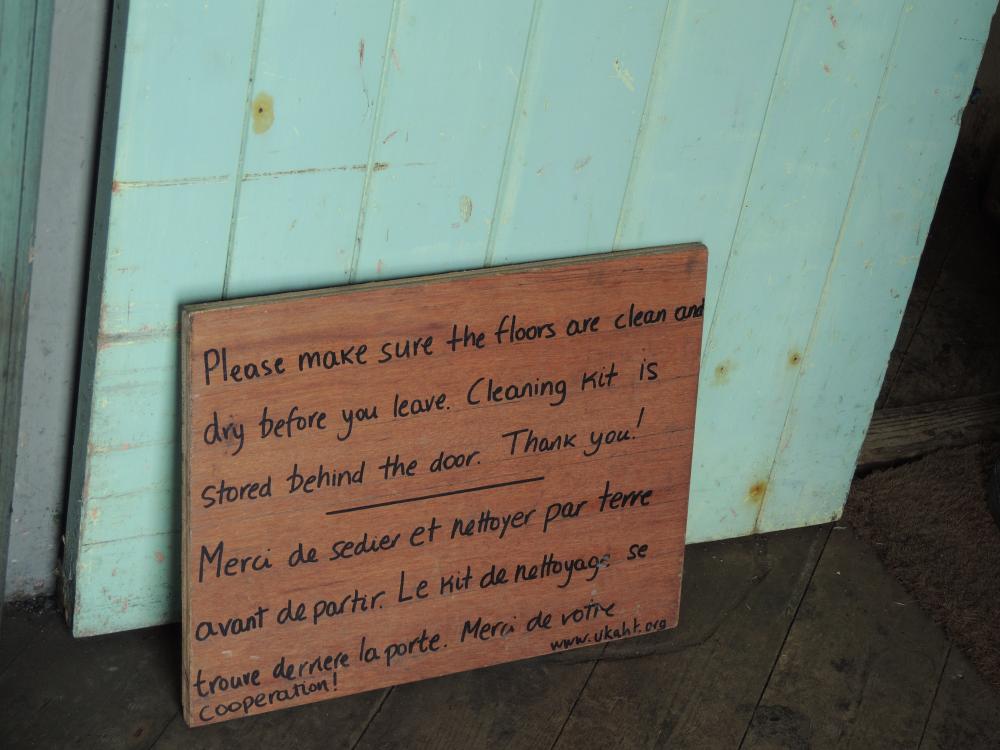 Please make sure the floors are clean and
dry before you leave. Cleaning kit is
stored behind the door. Thank you!
Merci de sedier et nettoyer par terre
avant de partir. Le kit de nettoyage se
trouve derriere la porte. Merci de votre
cooperation!
www.ukaht.org